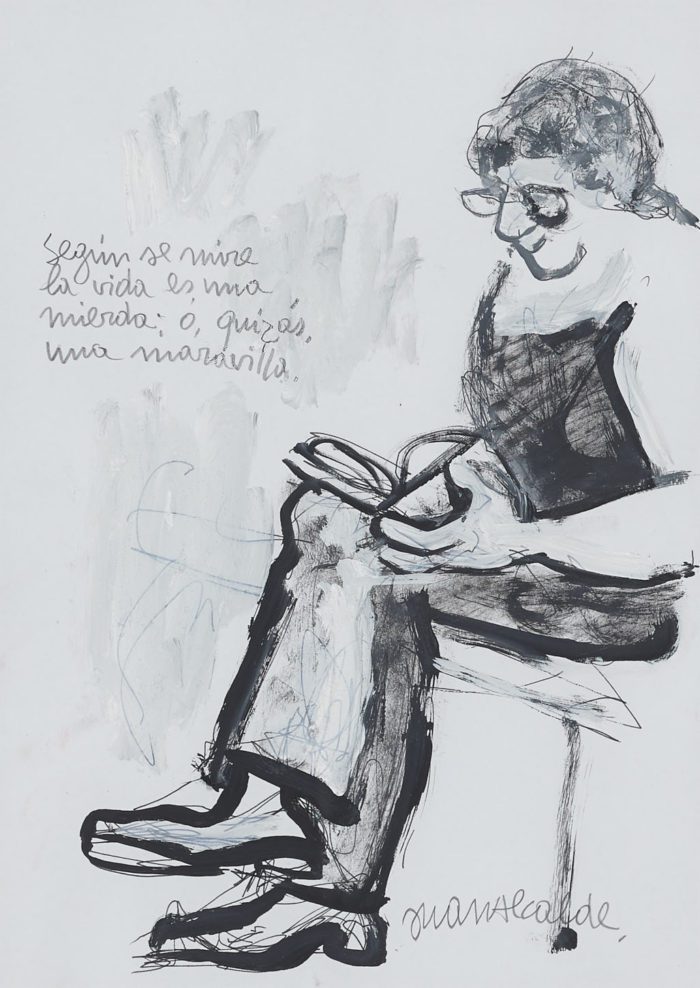 Según se mire
la vida es una
mierda; ó, quizás,
una maravilla.
Juan Alcalde.